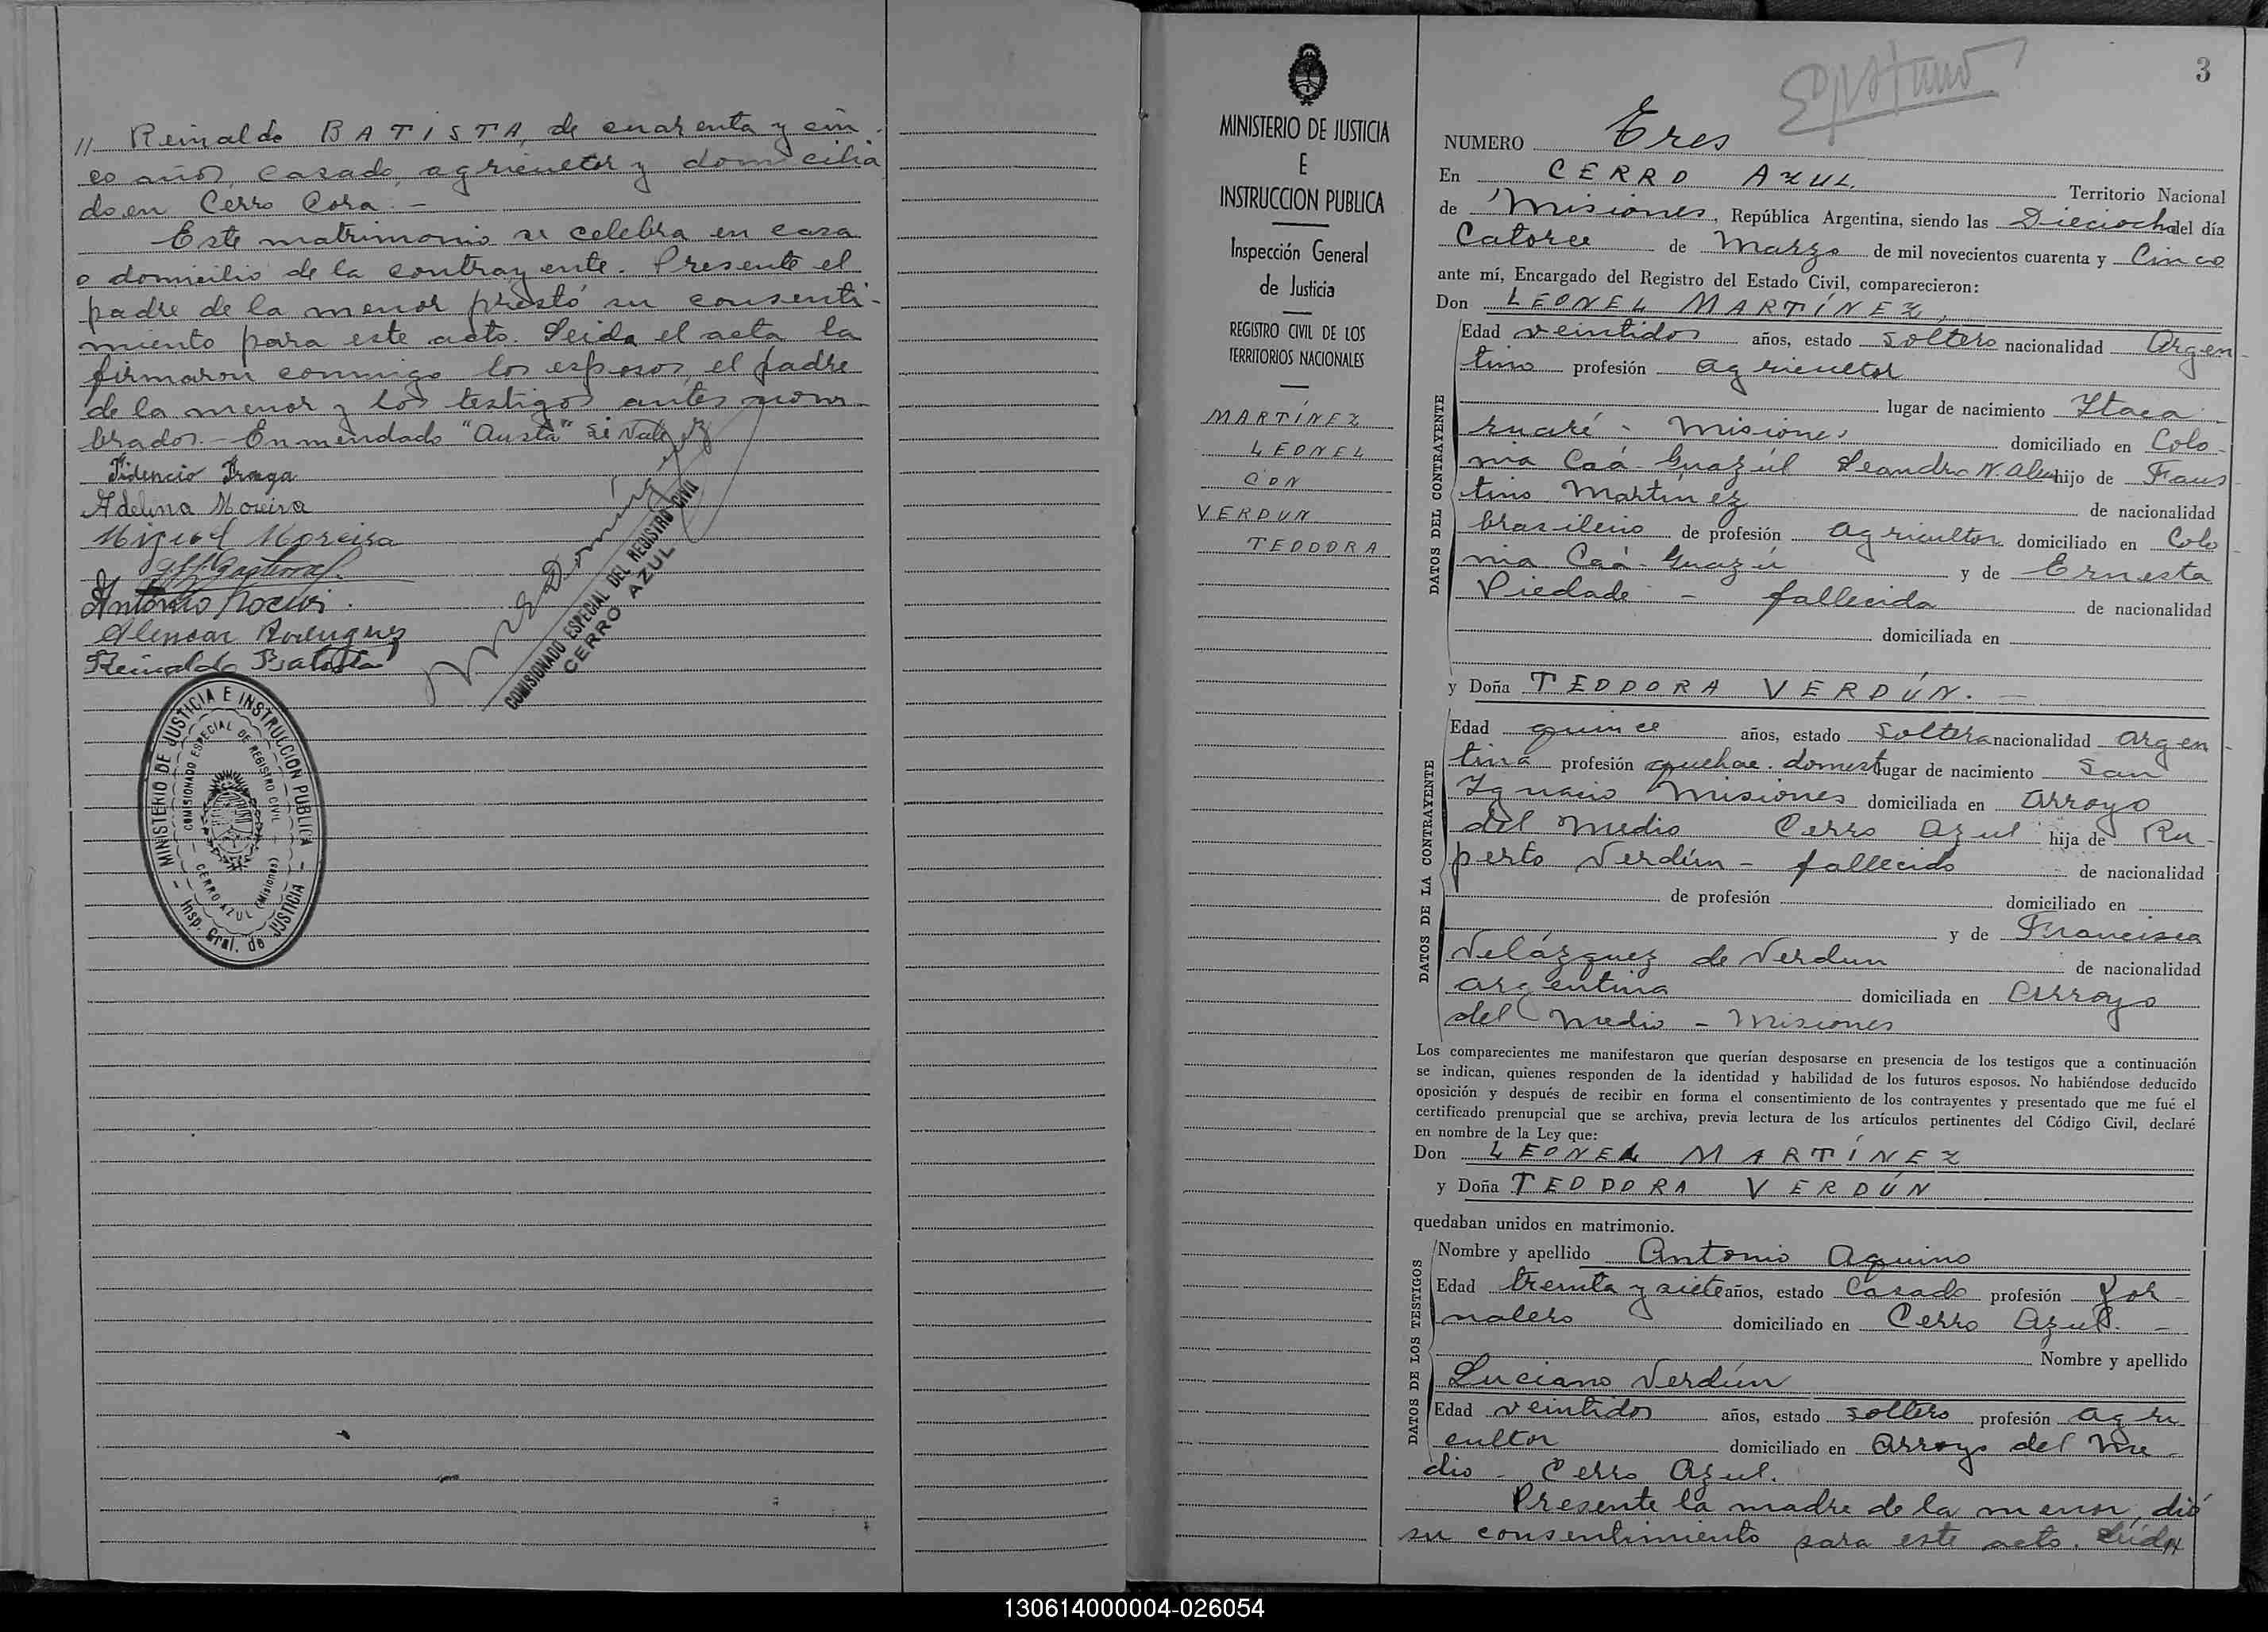 // Reinaldo BATISTA, de cuarenta y cin-
co años, casado, agricultor y domicilia
do en Cerro Cora. -
Este matrimonio se celebra en casa
o domicilio de la contrayente. Presente el
padre de la menor prestó su consenti-
miento para este acto. Leida el acta la
firmaron conmigo los esposos, el padre
de la menor y los testigos antes nom-
brados. - Enmendado "Austa" si vale
Fidencio Fraga
Adelina Moreira
Miguel Moreira
Antonio
Alencar Rodrigues
Reinaldo Batista
COMISIONADO ESPECIAL DEL REGISTRO CIVIL
CERRO AZUL
MINISTERIO DE JUSTICIA E INSTRUCCION PUBLICA
- Insp. Gral. de JUSTICIA -
COMISIONADO ESPECIAL DE REGISTRO CIVIL
CERRO AZUL (Misiones)
MINISTERIO DE JUSTICIA
E
INSTRUCCION PUBLICA
Inspección General
de Justicia
REGISTRO CIVIL DE LOS
TERRITORIOS NACIONALES
MARTÍNEZ
LEONEL
CON
VERDUN
TEODORA
3
NUMERO Tres
En CERRO AZUL. Territorio Nacional
de Misiones, República Argentina, siendo las Dieciocho del día
Catorce de Marzo de mil novecientos cuarenta y Cinco
ante mí, Encargado del Registro del Estado Civil, comparecieron:
Don LEONEL MARTÍNEZ,
DATOS DEL CONTRAYENTE
Edad veintidos años, estado soltero nacionalidad Argen-
tino profesión agricultor
lugar de nacimiento Itaca-
ruaré - Misiones domiciliado en Colo-
nia Caá-Guazú Leandro N. Alem hijo de Faus-
tino Martínez de nacionalidad
brasileño de profesión agricultor domiciliado en Colo-
nia Caá-Guazú y de Ernesta
Piedade - fallecida de nacionalidad
domiciliada en
y Doña TEODORA VERDÚN. -
DATOS DE LA CONTRAYENTE
Edad quince años, estado soltera nacionalidad argen-
tina profesión quehac. domest lugar de nacimiento San
Ignacio Misiones domiciliada en Arroyo
del Medio Cerro Azul hija de Ru-
perto Verdún - fallecido de nacionalidad
de profesión domiciliado en
y de Francisca
Velázquez de Verdun de nacionalidad
argentina domiciliada en Arroyo
del Medio - Misiones
Los comparecientes me manifestaron que querían desposarse en presencia de los testigos que a continuación
se indican, quienes responden de la identidad y habilidad de los futuros esposos. No habiéndose deducido
oposición y después de recibir en forma el consentimiento de los contrayentes y presentado que me fué el
certificado prenupcial que se archiva, previa lectura de los artículos pertinentes del Código Civil, declaré
en nombre de la Ley que:
Don LEONEL MARTÍNEZ
y Doña TEODORA VERDÚN
quedaban unidos en matrimonio.
DATOS DE LOS TESTIGOS
Nombre y apellido Antonio Aquino
Edad treinta y siete años, estado Casado profesión Jor-
nalero domiciliado en Cerro Azul. -
Nombre y apellido
Luciano Verdún
Edad veintidos años, estado soltero profesión agri-
cultor domiciliado en Arroyo del Me-
dio - Cerro Azul.
Presente la madre de la menor, dió
su consentimiento para este acto. Leida
130614000004-026054